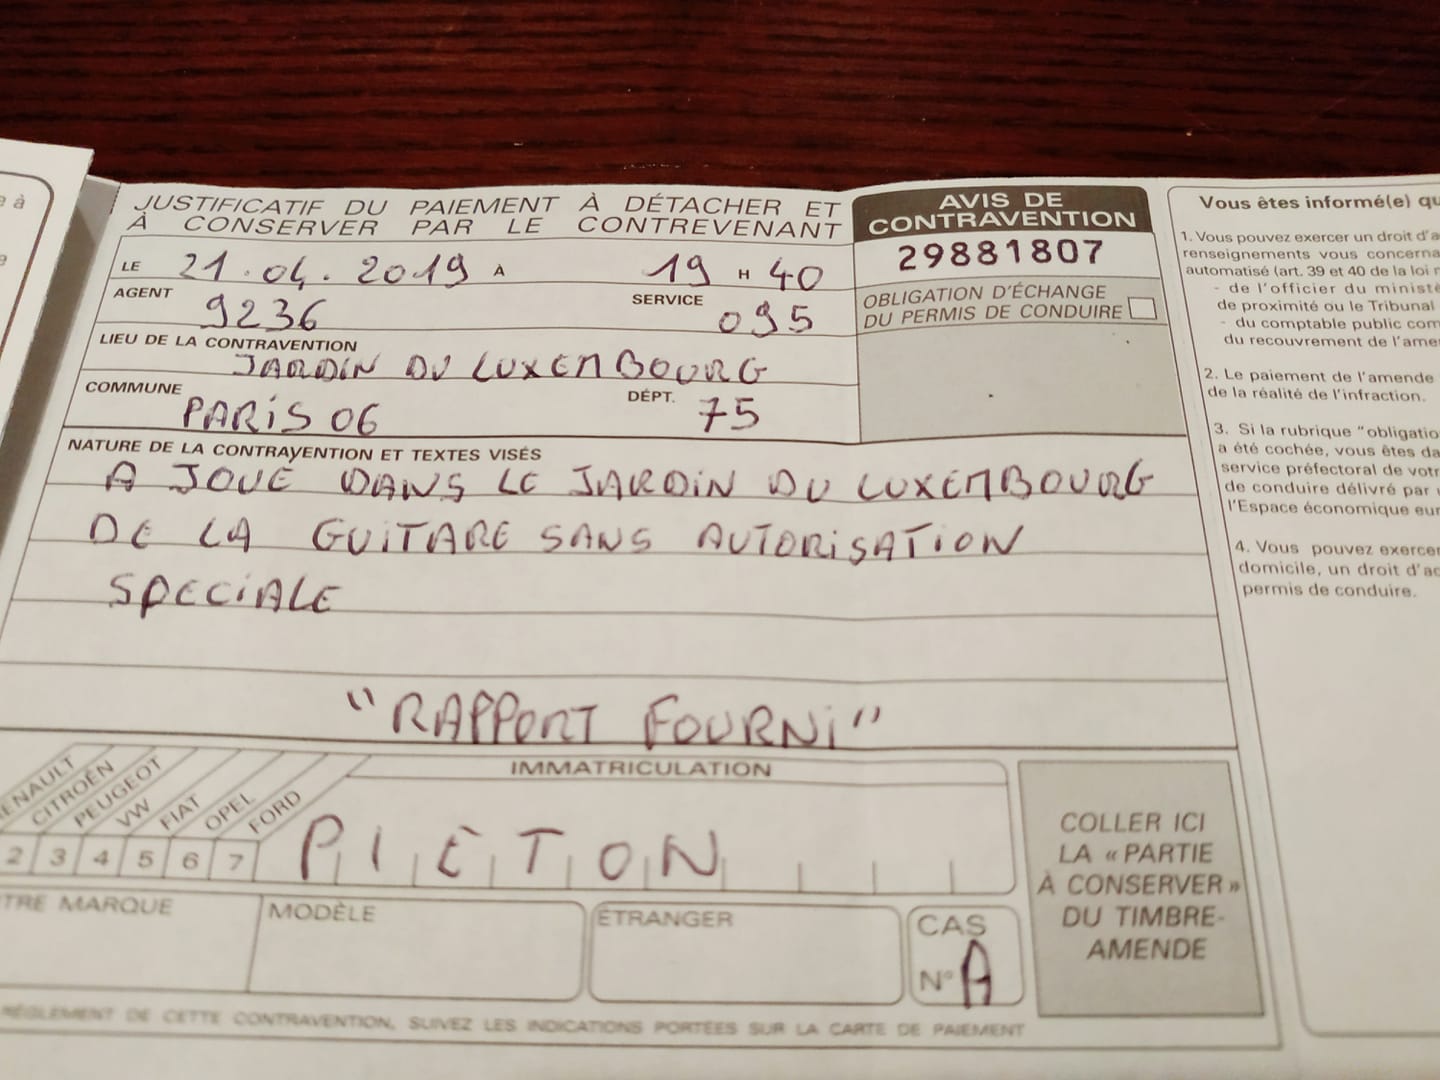 JUSTIFICATIF DU PAIEMENT À DÉTACHER ET
À CONSERVER PAR LE CONTREVENANT
LE 21.04.2019 À 19 H 40
AGENT 9236 SERVICE 095
LIEU DE LA CONTRAVENTION
JARDIN DU LUXEMBOURG
COMMUNE PARIS 06 DÉPT. 75
AVIS DE
CONTRAVENTION
29881807
OBLIGATION D'ÉCHANGE
DU PERMIS DE CONDUIRE
NATURE DE LA CONTRAVENTION ET TEXTES VISÉS
A JOUE DANS LE JARDIN DU LUXEMBOURG
DE LA GUITARE SANS AUTORISATION
SPECIALE
"RAPPORT FOURNI"
CITROËN
PEUGEOT
VW
FIAT
OPEL
FORD
2 3 4 5 6 7
IMMATRICULATION
PIETON
MARQUE
MODÈLE
ÉTRANGER
CAS
N° A
COLLER ICI
LA « PARTIE
À CONSERVER »
DU TIMBRE-
AMENDE
RÉGLEMENT DE CETTE CONTRAVENTION, SUIVEZ LES INDICATIONS PORTÉES SUR LA CARTE DE PAIEMENT
Vous êtes informé(e)
1. Vous pouvez exercer un droit
renseignements vous
automatisé (art. 39 et 40 de la loi
- de l'officier du
de proximité ou le Tribunal
- du comptable public
du recouvrement de
2. Le paiement de l'amende
de la réalité de l'infraction.
3. Si la rubrique
a été cochée, vous êtes
service préfectoral de
de conduire délivré par
l'Espace économique
4. Vous pouvez
domicile, un droit
permis de conduire.